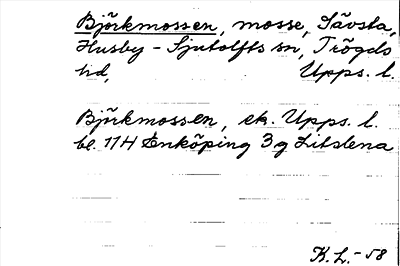 Björkmossen, mosse, Sävsta,
Husby-Sjutolfts sn, Trögds
hd, Upps. l.
Björkmossen, ek. Upps. l.
bl. 11H Enköping 3g Litslena
K.L.-58